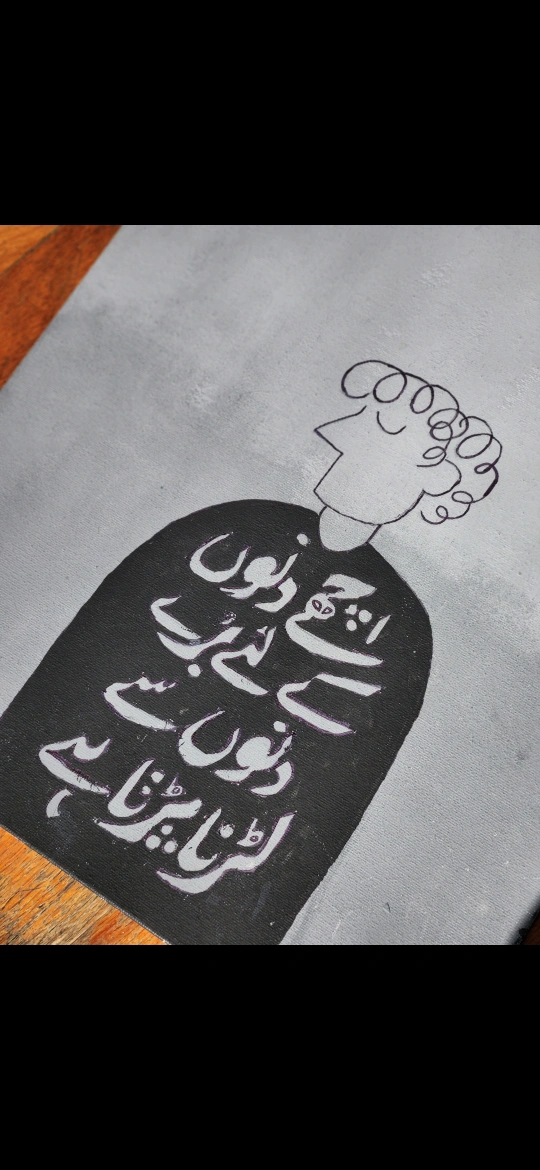 اچھے دنوں
کے لئے برے
دنوں سے
لڑنا پڑتا ہے